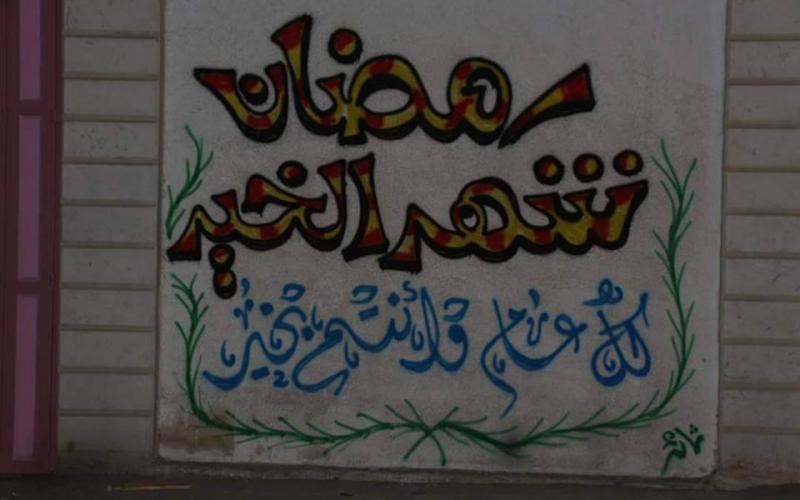 رمضان
شهر الخير
كل عام وأنتم بخير